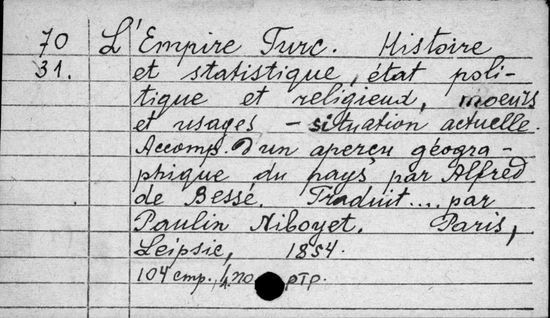 70 L'Empire Turc. Histoire
31. et statistique, état poli-
tique et religieux, moeurs
et usages – situation actuelle.
Accomp. d'un aperçu géogra-
phique du pays par Alfred
de Bessé. Traduit.... par
Paulin Niboyet. Paris,
Leipsic, 1854.
104 стр., портр.